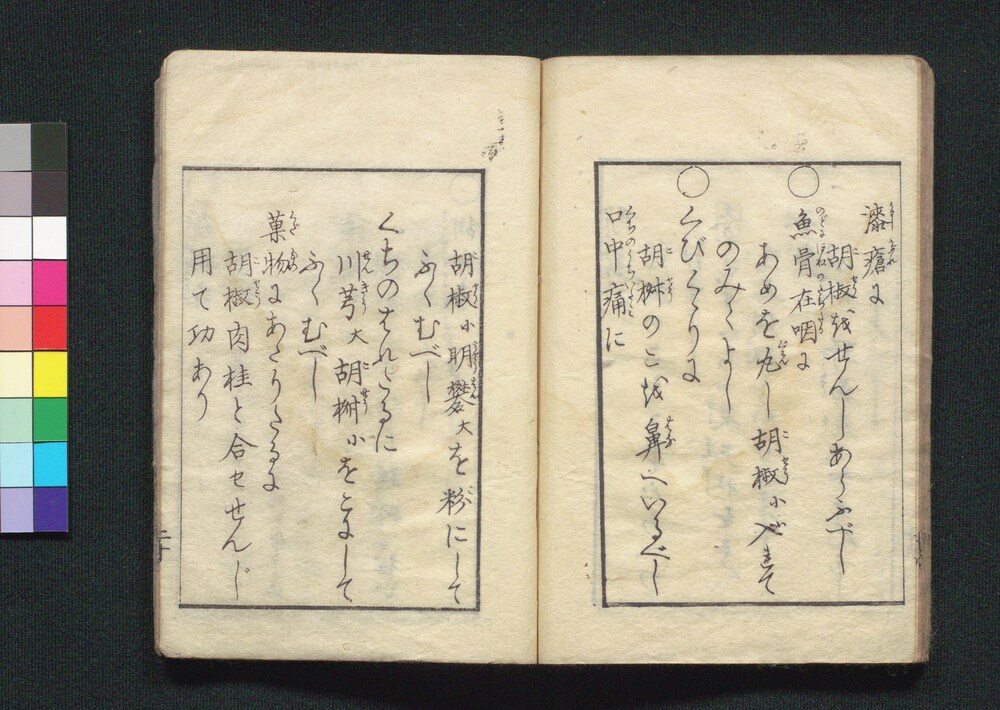 漆瘡に
胡椒をせんしあらふべし
○魚骨在咽に
あめを丸し胡椒小入レて
のみてよし
○くびくゝりに
胡椒のこを鼻へいるべし
口中痛に
胡椒小明礬大を粉にして
ふくむべし
くちのはれたるに
川芎大胡椒小をこにして
ふくむべし
菓物にあたりたるに
胡椒肉桂と合セせんじ
用て功あり